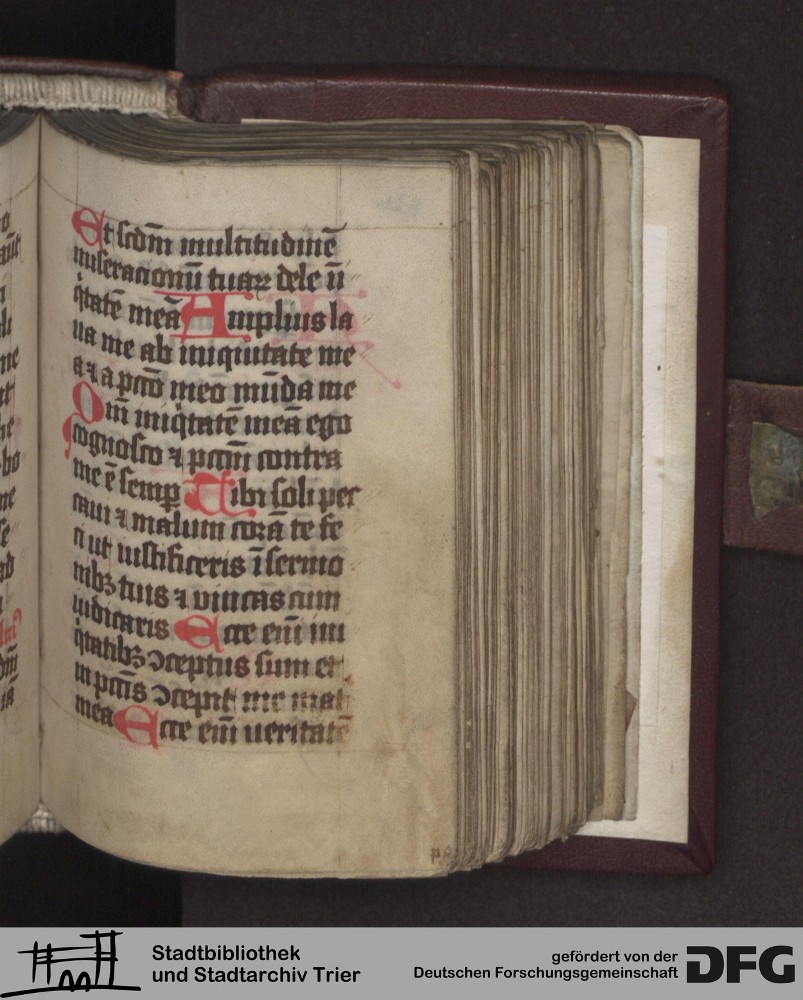 Et scdm̄ multitudinē
miseracionū tuaꝝ dele ī
iq̇tatē meā Amplius la
ua me ab iniquitate me
a ⁊ a pctō meo mūda me
Qm̄ iniq̇tatē meā ego
cognosco ⁊ pctm̄ contra
me ē semꝑ Tibi soli pec
caui ⁊ malum corā te fe
ci ut iustificeris ī sermo
nibꝫ tuis ⁊ vincas cum
iudicaris Ecce em̄ ini
q̇tatibꝫ ꝯceptus sum et
in pctīs ꝯcepit me mat̄
mea Ecce em̄ ueritatē
Stadtbibliothek
und Stadtarchiv Trier
gefördert von der
Deutschen Forschungsgemeinschaft
DFG